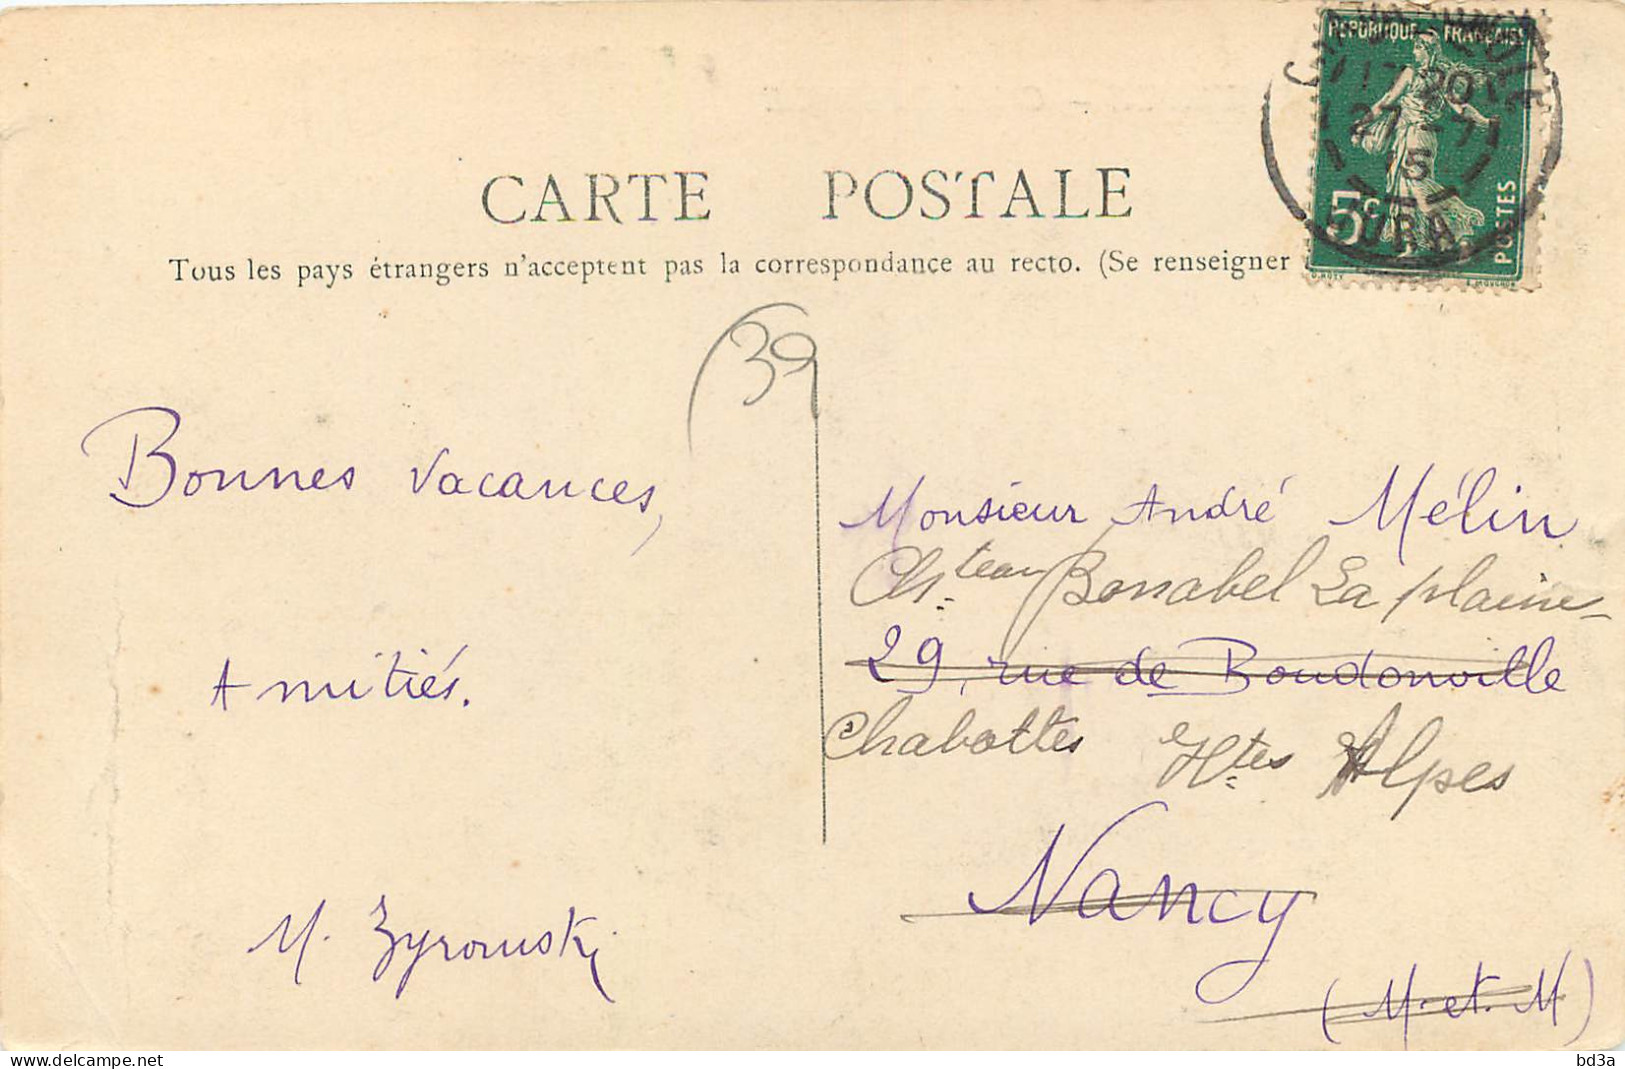 CARTE POSTALE
Tous les pays étrangers n'acceptent pas la correspondance au recto. (Se renseigner
REPUBLIQUE FRANÇAISE
5c
POSTES
17 20
27 - 7
15
JURA
39
Bonnes Vacances,
Amitiés.
M. Zyromski
Monsieur André Mélin
Chateau Bonnabel La plaine
29, rue de Boudonville
à Chabottes Htes Alpes
Nancy
(M. et. M)
delcampe.net
bd3a